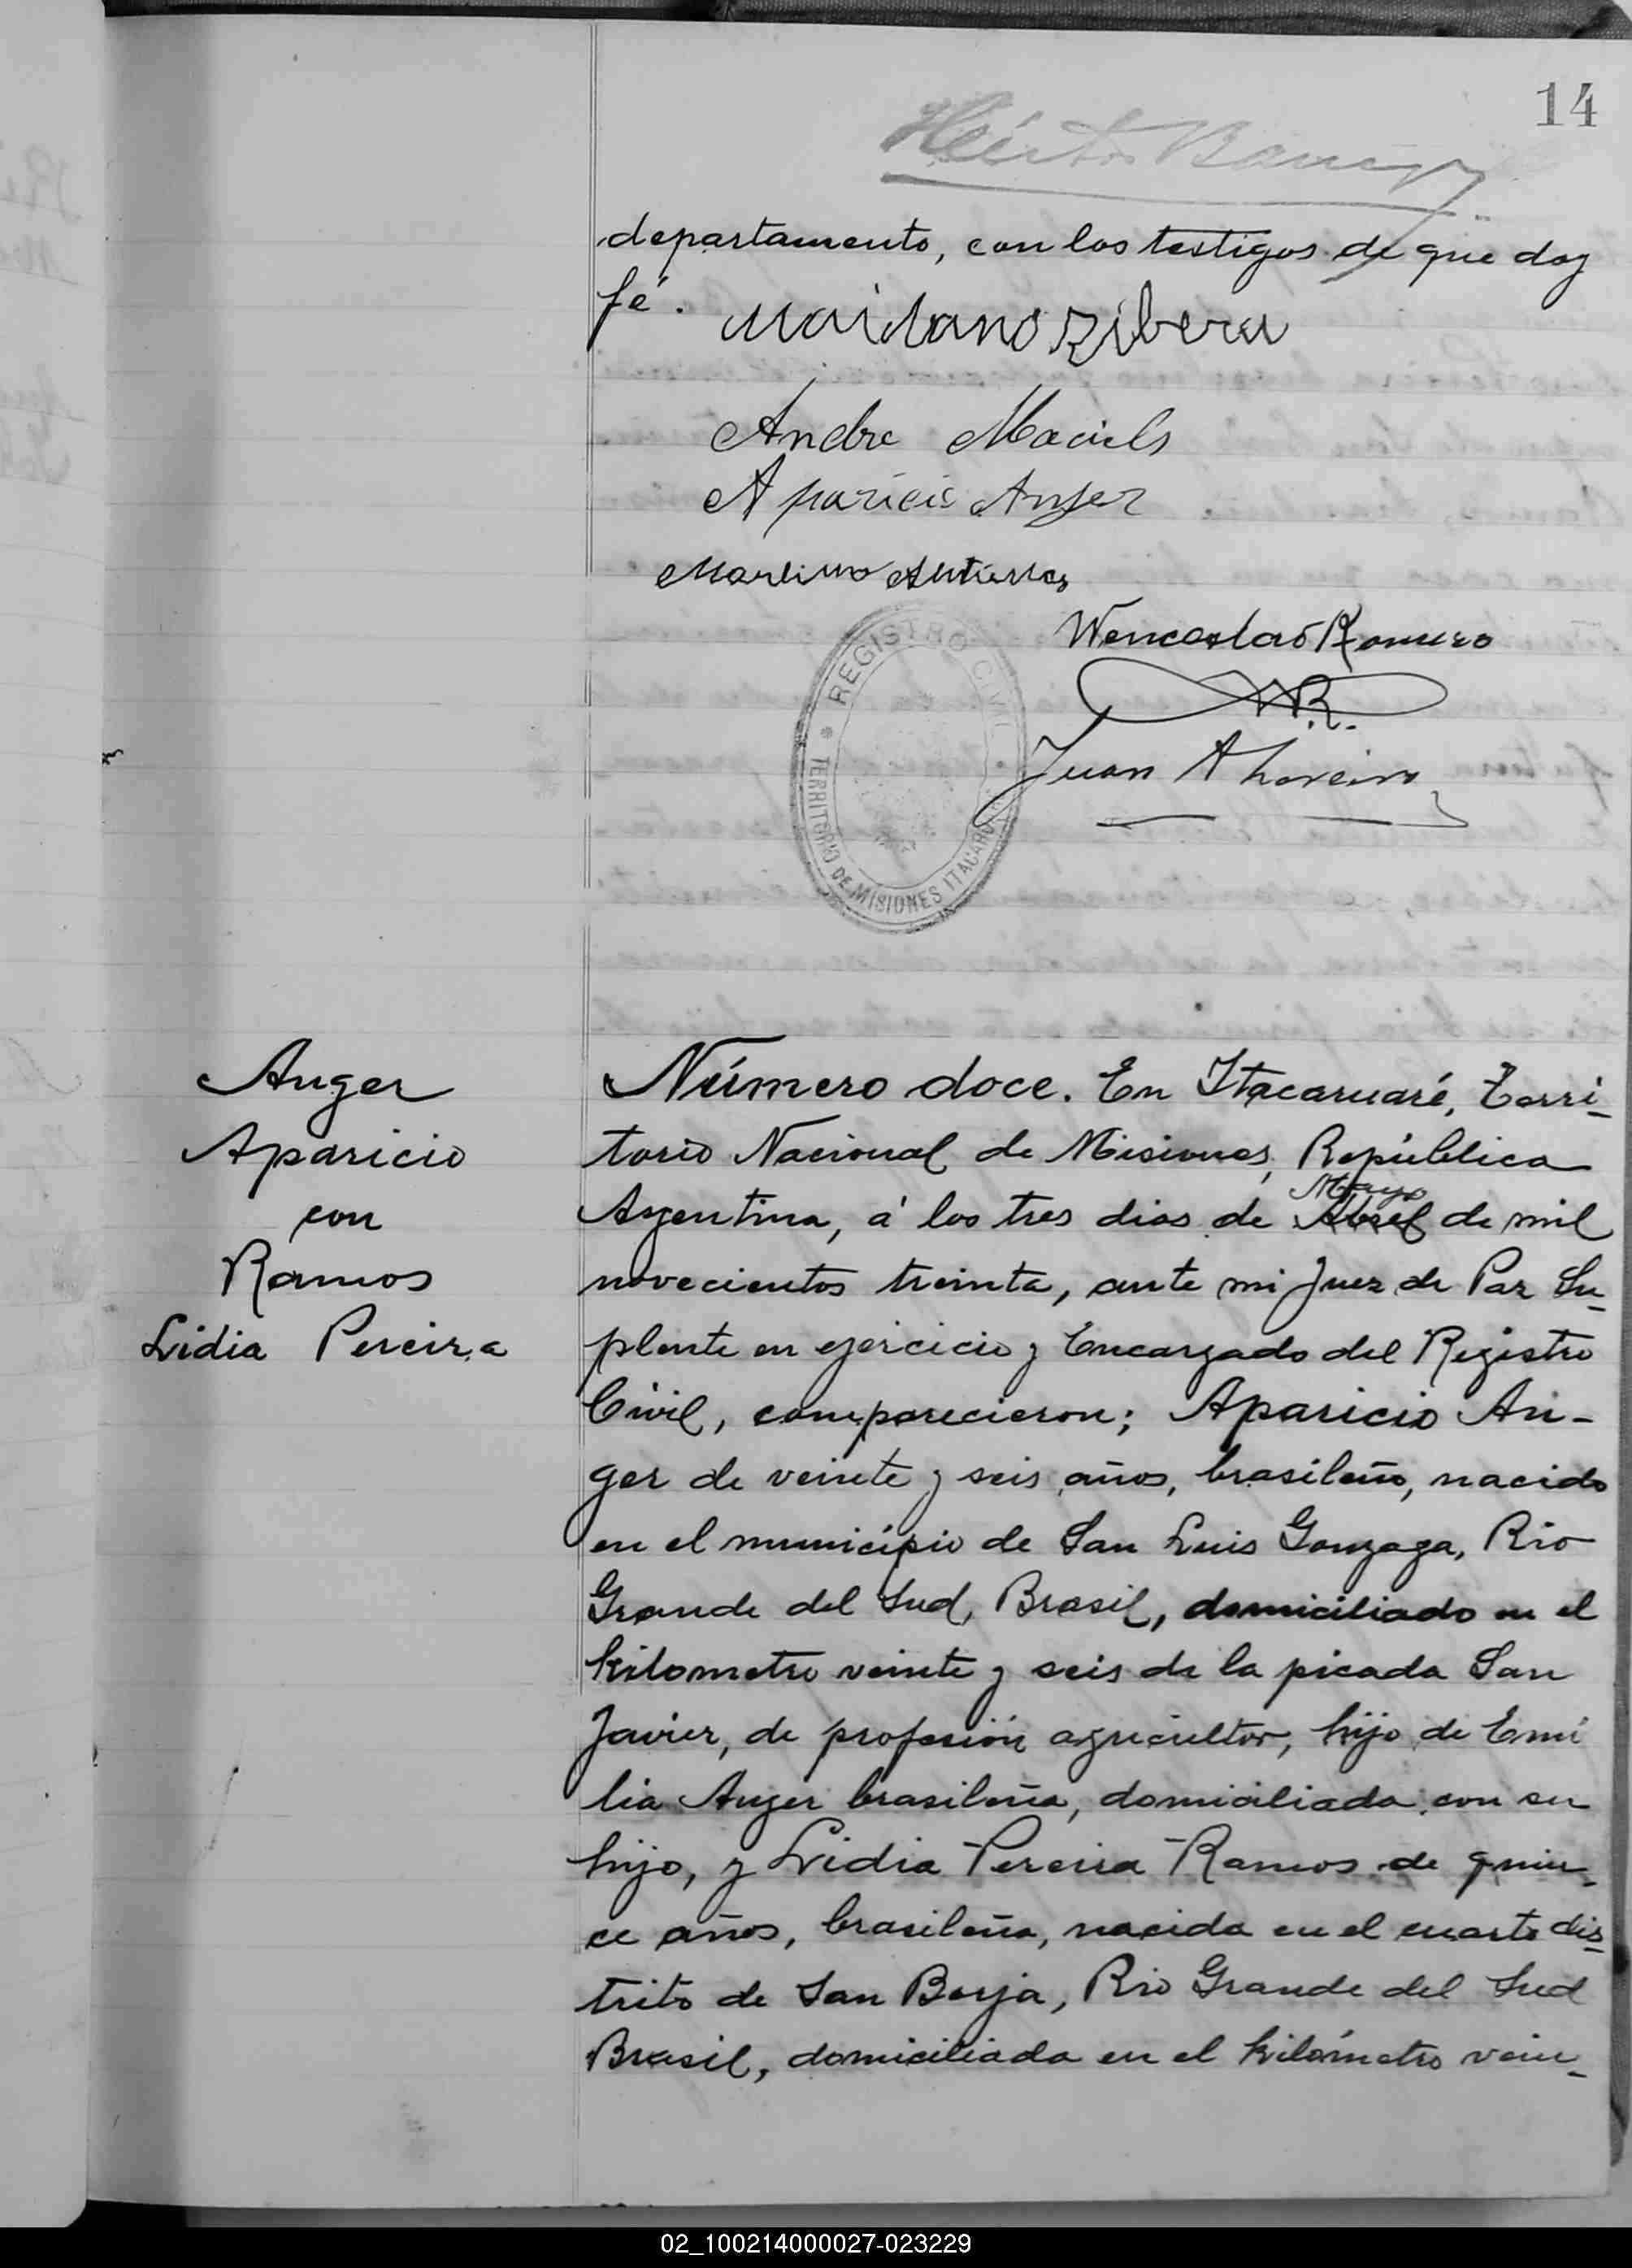 14
departamento, con los testigos de que doy
fé.
Andre Maciels
Aparicio Anger
Wenceslao Romero
WR.
Juan A
REGISTRO CIVIL
TERRITORIO DE MISIONES ITACARUARÉ
Auger
Aparicio
con
Ramos
Lidia Pereira
Número doce. En Itacaruaré, Terri-
torio Nacional de Misiones, República
Argentina, á los tres dias de Abril de mil
Mayo
novecientos treinta, ante mi Juez de Paz Su-
plente en ejercicio y Encargado del Registro
Civil, comparecieron; Aparicio An-
ger de veinte y seis años, brasileño, nacido
en el município de San Luis Gonzaga, Rio
Grande del Sud, Brasil, domiciliado en el
kilometro veinte y seis de la picada San
Javier, de profesión agricultor, hijo de Emi
lia Auger brasileña, domiciliada con su
hijo, y Lidia Pereira Ramos de quin-
ce años, brasileña, nacida en el cuarto dis-
trito de San Borja, Rio Grande del Sud
Brasil, domiciliada en el kilómetro vein-
02_100214000027-023229